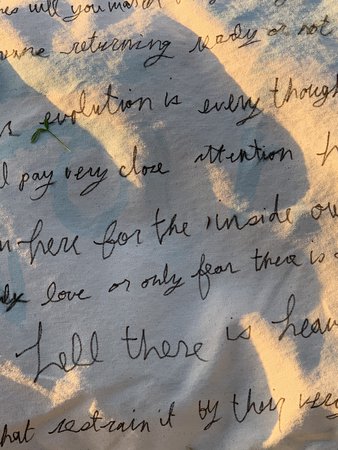 will you
returning ready or not
evolution is every though
pay very close attention
here for the inside ou
love or only fear there is
hell there is heav
hat restrain it by their very